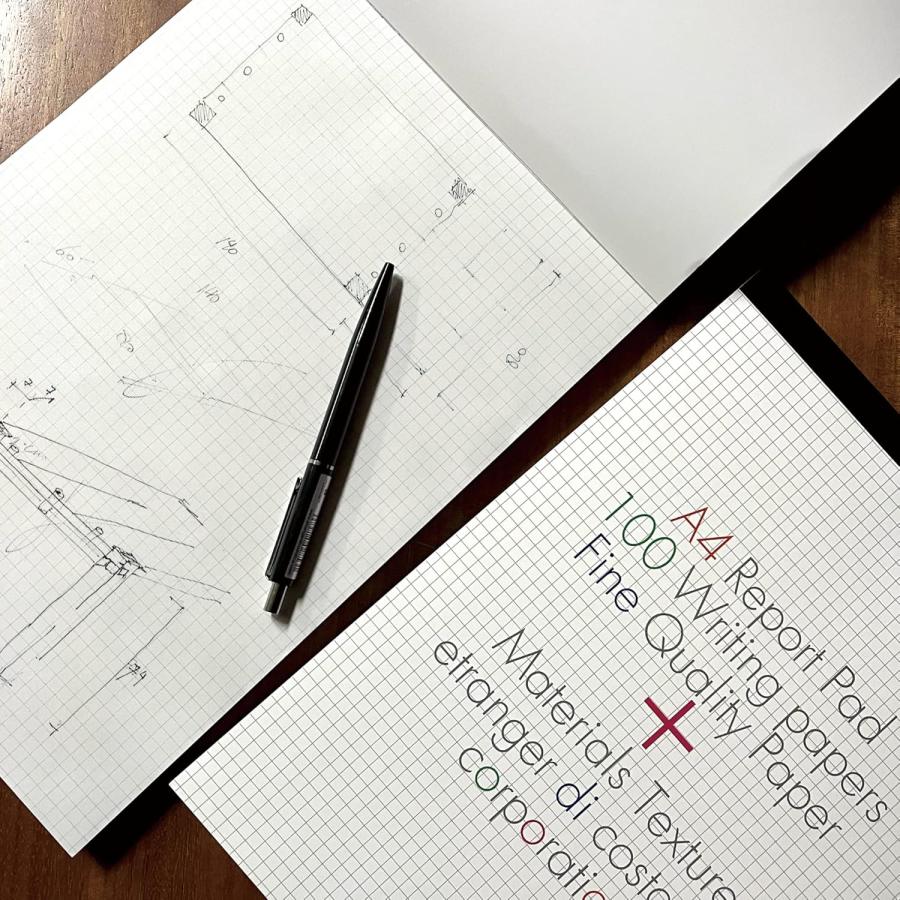 A4 Report Pad
100 Writing papers
Fine Quality Paper
Materials Texture
etranger di costa
corporatio
140
140
80
74
7 7